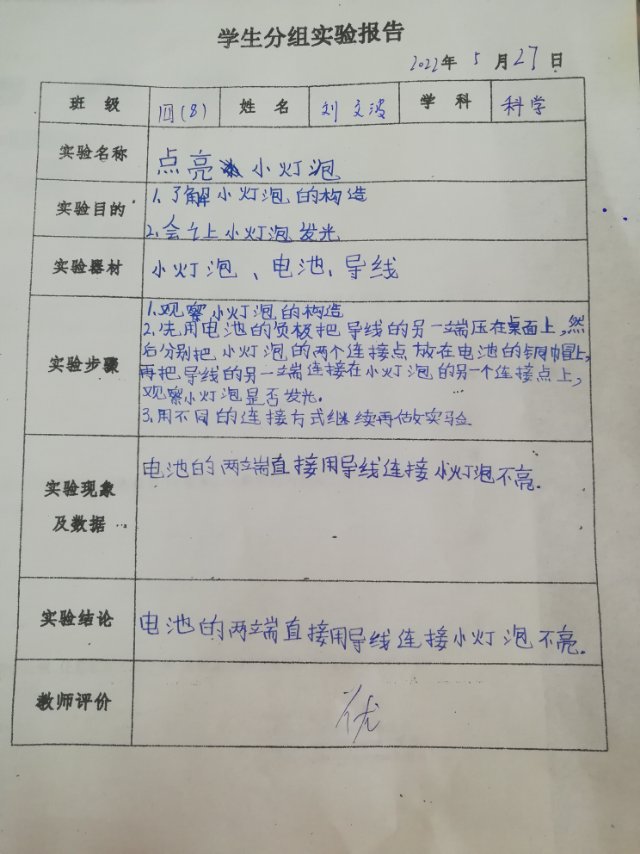 学生分组实验报告
2022年 5 月27日
班 级 四(8) 姓 名 刘文波 学 科 科学
实验名称 点亮小灯泡
实验目的 1.了解小灯泡的构造
2.会让小灯泡发光
实验器材 小灯泡、电池、导线
实验步骤 1.观察小灯泡的构造
2.先用电池的负极把导线的另一端压在桌面上,然
后分别把小灯泡的两个连接点放在电池的铜帽上,
再把导线的另一端连接在小灯泡的另一个连接点上,
观察小灯泡是否发光.
3.用不同的连接方式继续再做实验
实验现象
及数据
电池的两端直接用导线连接小灯泡不亮.
实验结论 电池的两端直接用导线连接小灯泡不亮.
教师评价 优